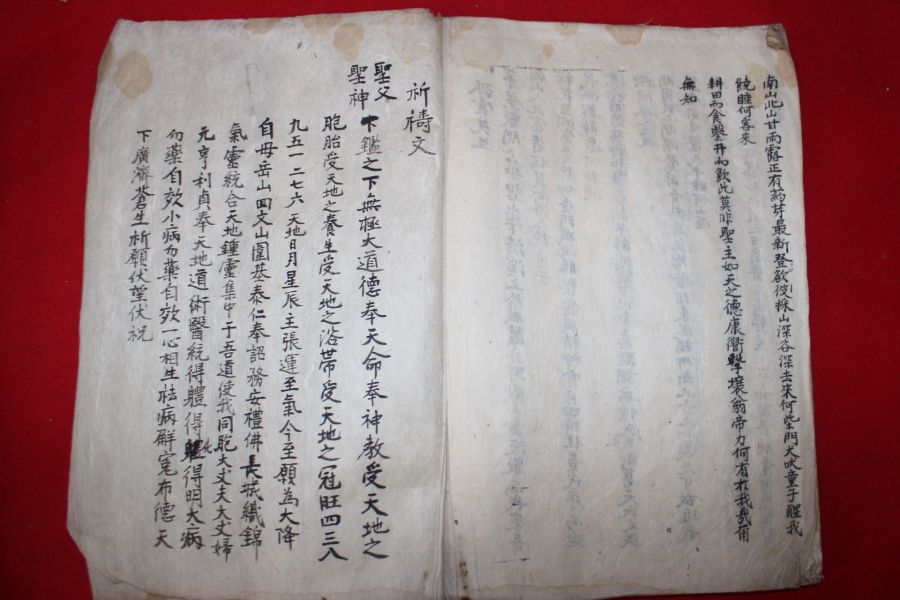 南山北山甘雨露正有葯芽最新登欲從採山深谷深去來何柴門犬吠童子醒我
饒睡何客來
耕田而食鑿井而飮此莫非聖主如天之德康衢擊壤翁帝力何有於我哉爾
無知
祈禱文
聖父
聖神 下鑑之下無極大道德奉天命奉神教受天地之
胞胎受天地之養生受天地之浴帶受天地之冠旺四三八
九五一二七六天地日月星辰主張運至氣今至願為大降
自母岳山回文山圍基泰仁奉詔務安禮佛長城織錦
氣靈統合天地鍾靈集中于吾道使我同胞大丈夫大丈婦
元亨利貞奉天地道術醫統得軆得化得明大病
勿藥自效小病勿藥自效一心相生祛病解寃布德天
下廣濟蒼生祈願伏望伏祝